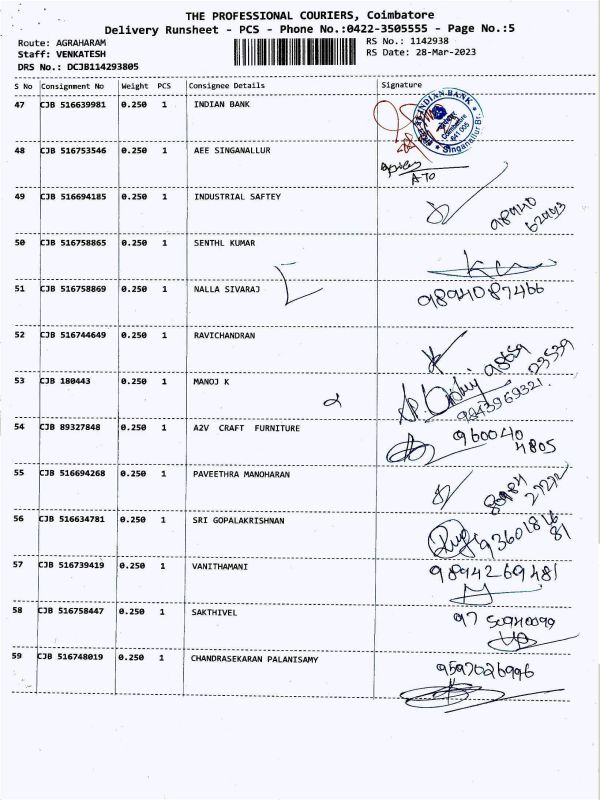 THE PROFESSIONAL COURIERS, Coimbatore
Delivery Runsheet - PCS - Phone No.:0422-3505555 - Page No.:5
Route: AGRAHARAM
RS No.: 1142938
Staff: VENKATESH
RS Date: 28-Mar-2023
DRS No.: DCJB114293805
S No Consignment No Weight PCS Consignee Details Signature
47 CJB 516639981 0.250 1 INDIAN BANK
INDIAN BANK
Coimbatore
641 005
Singanallur Br.
48 CJB 516753546 0.250 1 AEE SINGANALLUR
ATO
49 CJB 516694185 0.250 1 INDUSTRIAL SAFTEY
98940
62993
50 CJB 516758865 0.250 1 SENTHL KUMAR
51 CJB 516758869 0.250 1 NALLA SIVARAJ
9894087466
52 CJB 516744649 0.250 1 RAVICHANDRAN
98659
23539
53 CJB 180443 0.250 1 MANOJ K
9243969321.
54 CJB 89327848 0.250 1 A2V CRAFT FURNITURE
960040
4805
55 CJB 516694268 0.250 1 PAVEETHRA MANOHARAN
56 CJB 516634781 0.250 1 SRI GOPALAKRISHNAN
93601816
81
57 CJB 516739419 0.250 1 VANITHAMANI
9894269481
58 CJB 516758447 0.250 1 SAKTHIVEL
97 50940099
59 CJB 516748019 0.250 1 CHANDRASEKARAN PALANISAMY
9597026996